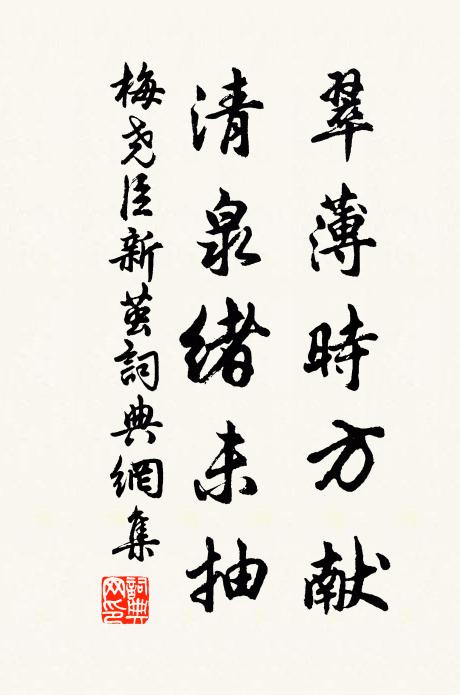 翠薄時方献
清泉緒未抽
梅尭臣新茧詞典網集
詞典网印